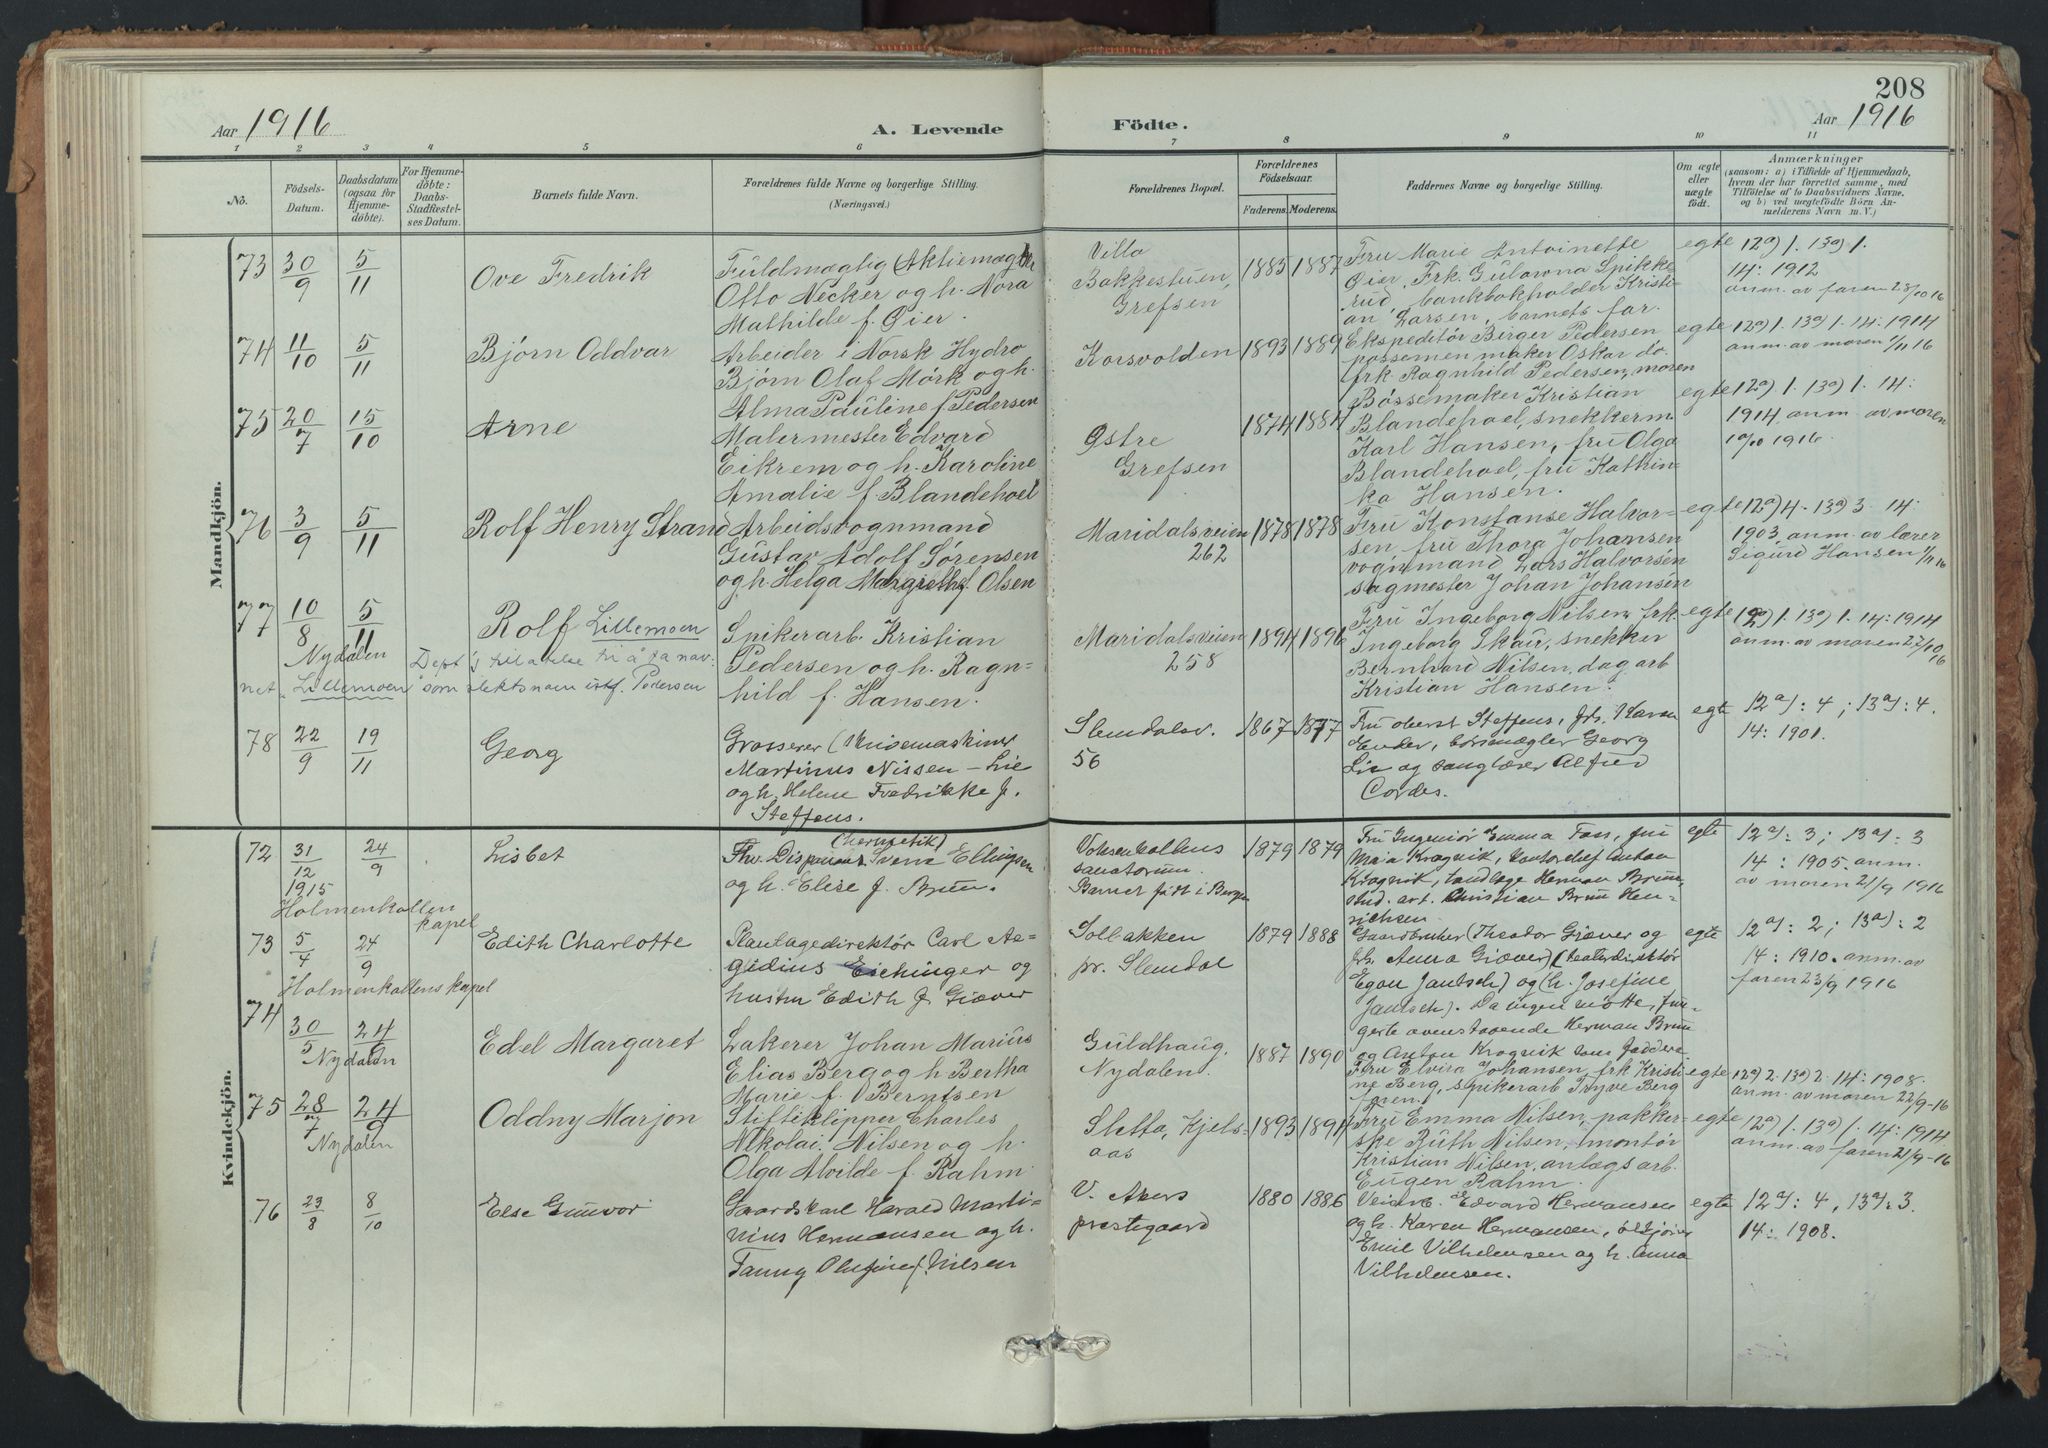 208
Aar 1916
A. Levende
Födte.
Aar 1916
1 2 3 4 5 6 7 8 9 10 11
No.
Födsels-
Datum.
Daabsdatum
(ogsaa for
Hjemme-
döbte).
For Hjemme-
döbte:
Daabs-
Stadfestel-
ses Datum.
Barnets fulde Navn.
Forældrenes fulde Navne og borgerlige Stilling.
(Næringsvei.)
Forældrenes Bopæl.
Forældrenes
Födselsaar.
Faderens. Moderens.
Faddernes Navne og borgerlige Stilling.
Om ægte
eller
uægte
født.
Anmærkninger
(saasom: a) i Tilfælde af Hjemmedaab,
hvem der har forrettet samme, med
Tilföielse af to Daabsvidners Navne.
og b) ved uægtefödte Börn An-
melderens Navn m. V.)
Mandkjön.
73
30/9
5/11
Ove Fredrik
Fuldmægtig (Aktiemægler
Otto Necker og h. Nora
Mathilde f. Øier.
Villa
Bakkestuen,
Grefsen
1885 1887
Fru Marie Antoinette
Øier, Frk. Gulowna Spikke-
rud, bankbokholder Kristi-
an Larsen, barnets far.
egte
12a) 1. 13a) 1.
14: 1912
anm. av faren 28/10 16
74
11/10
5/11
Bjørn Oddvar
Arbeider i Norsk Hydro
Bjørn Olaf Mörk og h.
Alma Pauline f. Pedersen
Korsvolden
1893 1889
Ekspeditør Birger Pedersen
possemen maker Oskar do.
frk. Ragnhild Pedersen, moren
egte
12a) 1. 13a) 1. 14: 1914
anm. av moren 1/11 16
75
20/7
15/10
Arne
Malermester Edvard
Eikrem og h. Karoline
Amalie f. Blandehoel
Østre
Grefsen
1874 1884
Bössemaker Kristian
Blandehoel, snekkerm.
Karl Hansen, fru Olga
Blandehoel, fru Kathin-
ka Hansen.
egte
12a) 1. 13a) 1. 14:
1914, anm. av moren
10/10 1916.
76
3/9
5/11
Rolf Henry Strand
Arbeidsvognmand
Gustav Adolf Sørensen
og h. Helga Margrethe f. Olsen
Maridalsveien
262
1878 1878
Fru Konstanse Halvor-
sen, fru Thora Johansen
vognmand Lars Halvorsen
sagmester Johan Johansen
egte
12a) 4. 13a) 3. 14:
1903, anm. av lærer
Sigurd Hansen 1/11 16
77
10/8
5/11
Nydalen
Rolf Lillemoen
Dept's tilatelse til å ta nav-
net "Lillemoen" som slektsnavn istf. Pedersen
Spikerarb. Kristian
Pedersen og h. Ragn-
hild f. Hansen.
Maridalsveien
258
1894 1896
Fru Ingeborg Nilsen, frk.
Ingeborg Skau, snekker
Bernhard Nilsen, dagarb.
Kristian Hansen.
egte
12a) 1. 13a) 1. 14: 1914
anm. av moren 27/10 16
78
22/9
19/11
Georg
Grosserer
Martinus Nissen-Lie
og h. Helene Fredrikke f.
Steffens.
Slemdalsv.
56
1867 1877
Fru oberst Steffens, frk. Karen
børsmægler Georg
Lie og sanglærer Alfred
Cordes.
egte
12a): 4; 13a): 4.
14: 1901.
Kvindekjön.
72
31/12
1915
24/9
Holmenkollen
kapel
Lisbet
(hermetik)
Disponent Svenn Ellingsen
og h. Elise f. Bruun.
Voksenkollens
sanatorium.
Barnet født i Bergen
1879 1879
Fru Ingeniør Emma Foss, fru
Maja Kragvik, kontorchef Anton
Kragvik, tandlæge Herman Bruun,
stud. art. Christian Bruun Hen-
richsen.
egte
12a): 3; 13a): 3
14: 1905. anm.
av moren 21/9 1916
73
5/4
24/9
Holmenkollens kapel
Edith Charlotte
Plantagedirektør Carl Ae-
gidius Eichinger og
hustru Edith f. Giæver
Solbakken
pr. Slemdal
1879 1888
Gaardbruker (Theodor Giæver og
frk. Anna Giæver) (Teaterdirektør
Egon Jantsch) og (h. Josefine
Jantsch). Da ingen møtte, fun-
gerte ovenstaaende Herman Bruun
og Anton Kragvik som faddere.
egte
12a): 2; 13a): 2
14: 1910. anm. av
faren 23/9 1916
74
30/5
24/9
Nydalen
Edel Margaret
Lakerer Johan Marius
Elias Berg og h. Bertha
Marie f. Berntsen
Guldhaug,
Nydalen.
1887 1890
Fru Elvira Johansen, frk. Kristi-
ne Berg, spikerarb. Tryve Berg
faren.
egte
12a) 2. 13a) 2. 14: 1908.
anm. av moren 22/9-16
75
28/7
24/9
Nydalen
Oddny Marjon
Stifteklipper Charles
Nikolai Nilsen og h.
Olga Alvilde f. Rahm.
Sletta, Kjels-
aas
1893 1894
Fru Emma Nilsen, pakker-
ske Ruth Nilsen, montør
Kristian Nilsen, anlægsarb.
Eugen Rahm.
egte
12a) 1. 13a) 1. 14: 1914.
anm. av faren 21/9-16
76
23/8
8/10
Else Gunvor
Gaardskarl Harald Marti-
nius Hermansen og h.
Fanny Olufine f. Nilsen
V. Akers
prestegaard
1880 1886
Veiarb. Edvard Hermansen
og h. Karen Hermansen,
Emil Vilhelmsen og h. Anna
Vilhelmsen.
egte
12a): 4, 13a): 3.
14: 1908.